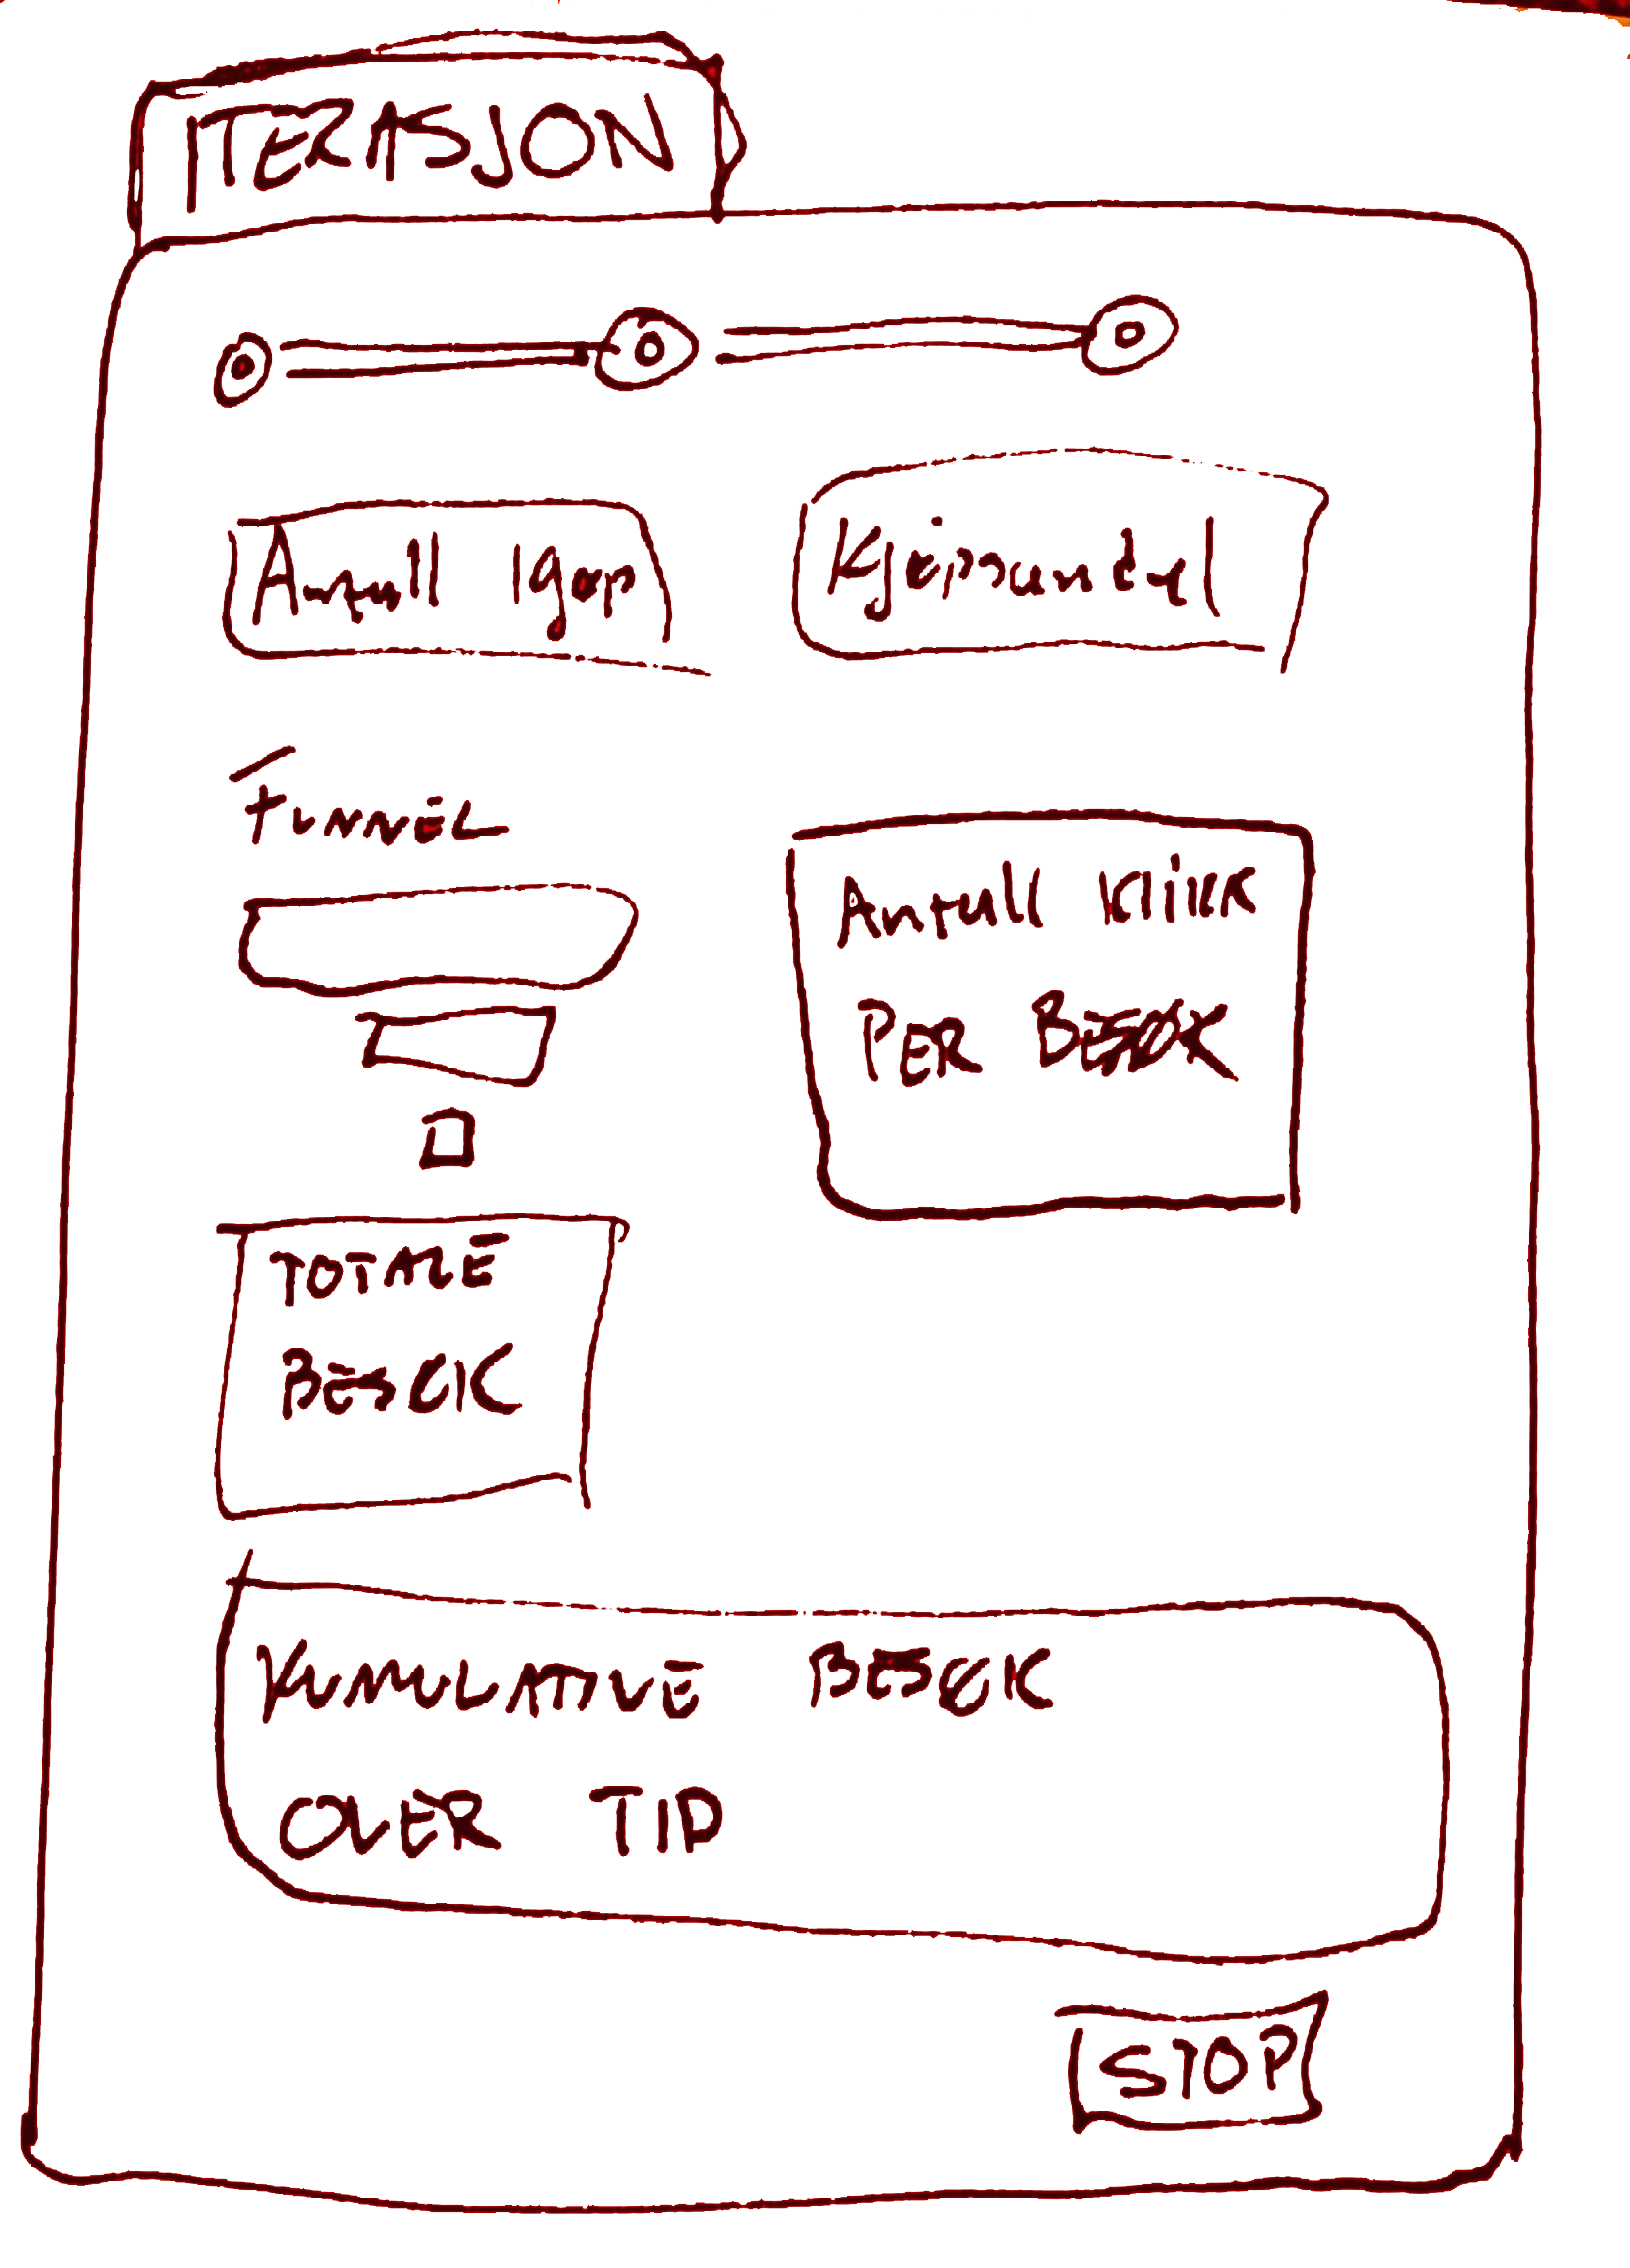 ITERASJON
Antall kjøp
Kjøpsandel
FUNNEL
Antall klikk
PER BESØK
TOTALE
BESØK
KUMULATIVE BESØK
OVER TID
STOP